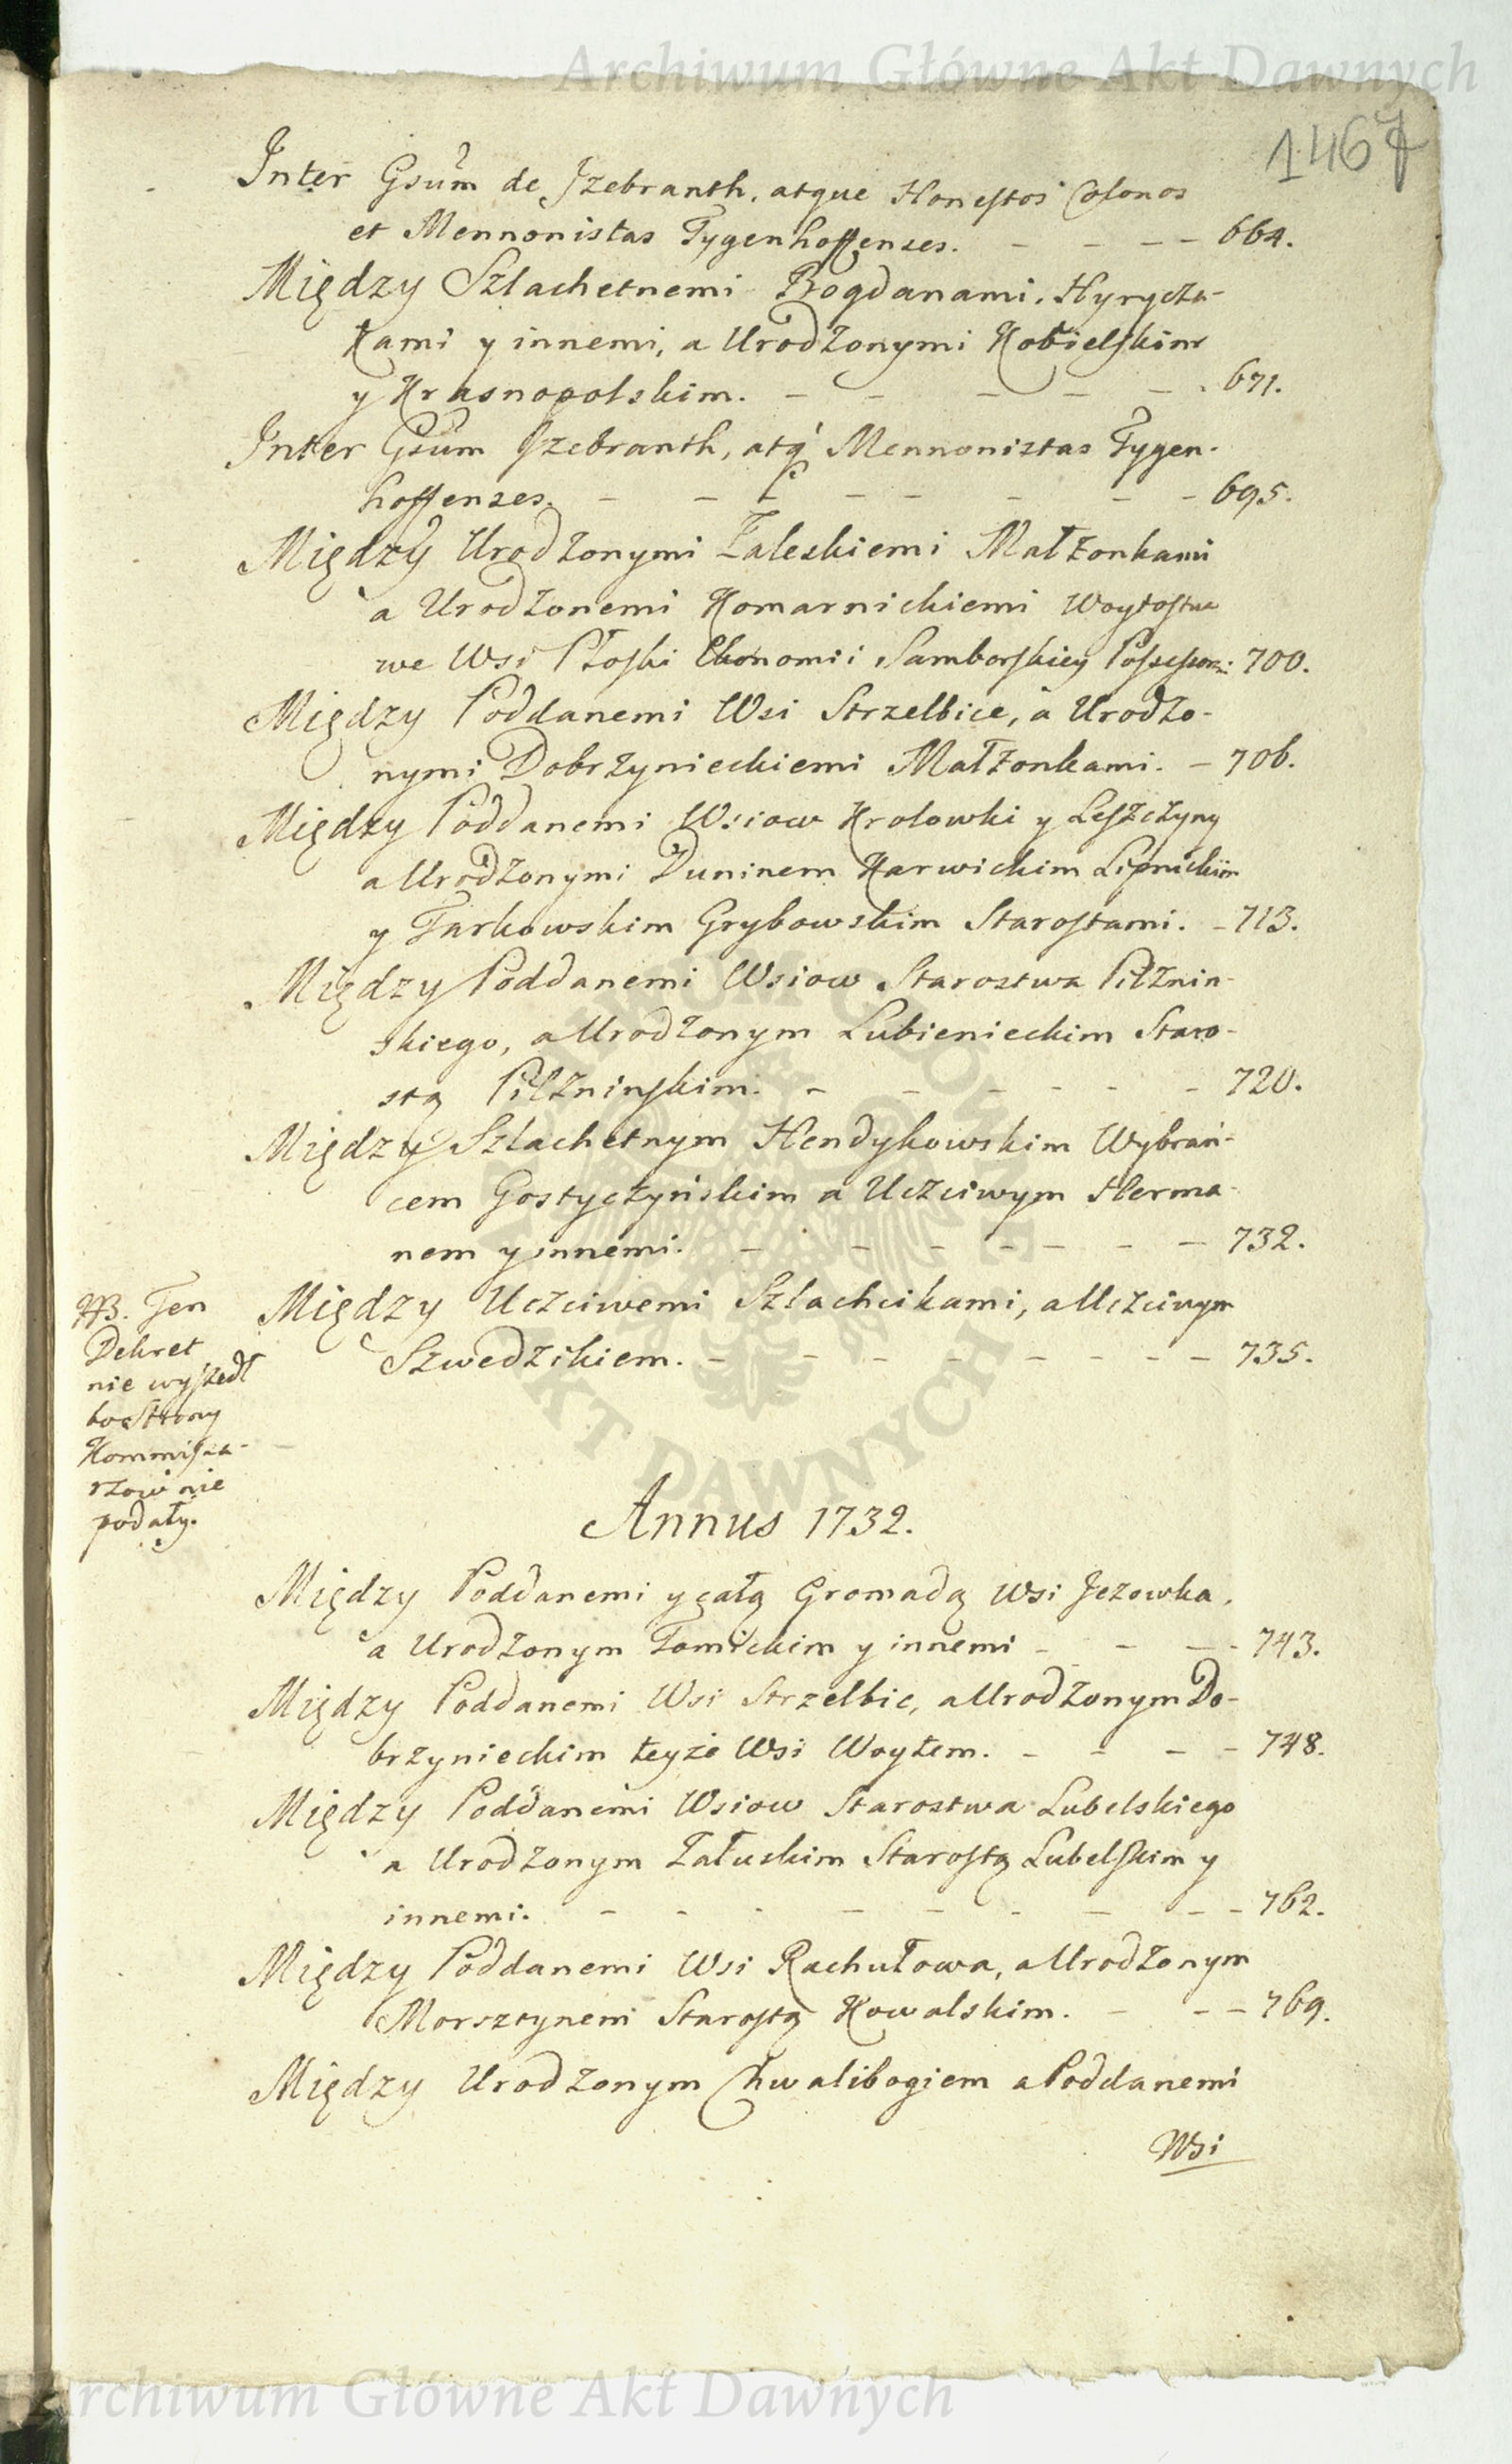 Archiwum Główne Akt Dawnych
1467
Inter Gsum de Jzebranth, atque Honestos Colonos
et Mennonistas Tygenhoffenses. - - - - 664.
Między Szlachetnemi Bogdanami, Hyrycza-
kami y innemi, a Urodzonymi Kobielskim
y Krasnopolskim. - - - - - 671.
Inter Gsum Jzebranth, atq Mennonistas Tygen-
hoffenses. - - - - - - - - 695.
Między Urodzonymi Zaleskiemi Małżonkami
a Urodzonemi Komarnickiemi Woytostwa
we Wsi Płoski Ekonomii Samborskiey 700.
Między Poddanemi Wsi Strzelbice, a Urodzo-
nymi Dobrzynieckiemi Małżonkami. - 706.
Między Poddanemi Wsiow Krolowki y Leszczyny
a Urodzonymi Duninem Karwickim Lipnickim
y Tarkowskim Grybowskim Starostami. - 713.
Między Poddanemi Wsiow Starostwa Pilznin-
skiego, a Urodzonym Lubienieckim Staro-
stą Pilzninskim. - - - - - - 720.
Między Szlachetnym Hendykowskim Wybrań-
cem Gostyczyńskim a Uczciwym Herma-
nem y innemi. - - - - - - - - 732.
Między Uczciwemi Szlachcikami, a Uczciwym
Szwedzikiem. - - - - - - - - 735.
NB. Ten
Dekret
nie wyszedł
bo Strony
Kommissa-
rzow nie
podały.
Annus 1732.
Między Poddanemi y całą Gromadą Wsi Jezowka,
a Urodzonym Tomickim y innemi - - - - 743.
Między Poddanemi Wsi Strzelbic, a Urodzonym Do-
brzynieckim teyże Wsi Woytem. - - - - 748.
Między Poddanemi Wsiow Starostwa Lubelskiego
a Urodzonym Załuskim Starostą Lubelskim y
innemi. - - - - - - - - - 762.
Między Poddanemi Wsi Rachułowa, a Urodzonym
Morsztynem Starostą Kowalskim. - - - 769.
Między Urodzonym Chwalibogiem a Poddanemi
Wsi
Archiwum Główne Akt Dawnych